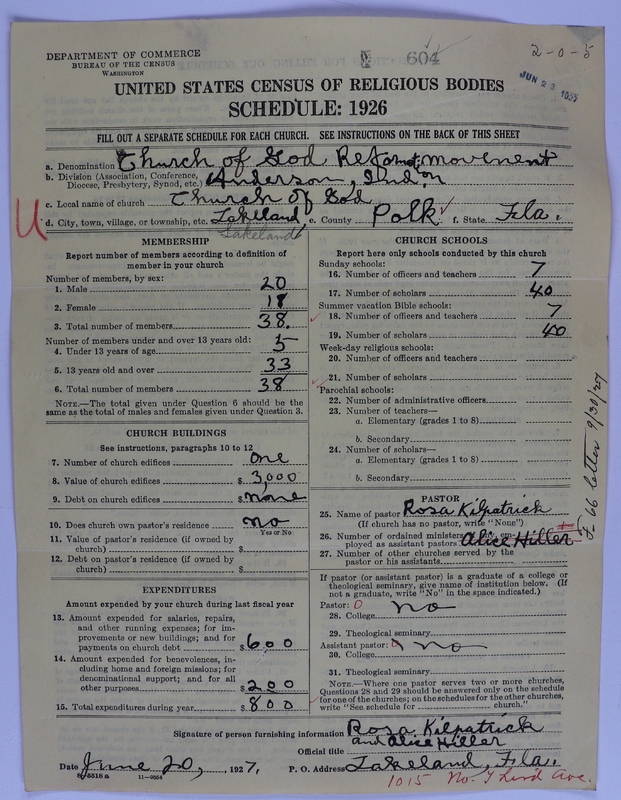 DEPARTMENT OF COMMERCE
BUREAU OF THE CENSUS
WASHINGTON
604
2-0-5
JUN 23 1935
UNITED STATES CENSUS OF RELIGIOUS BODIES
SCHEDULE: 1926
FILL OUT A SEPARATE SCHEDULE FOR EACH CHURCH. SEE INSTRUCTIONS ON THE BACK OF THIS SHEET
a. Denomination Church of God Reformat movement
b. Division (Association, Conference, Diocese, Presbytery, Synod, etc.) Anderson, Ind
c. Local name of church Church of God
d. City, town, village, or township, etc. Lakeland e. County Polk f. State Fla.
Lakeland
MEMBERSHIP
Report number of members according to definition of
member in your church
Number of members, by sex:
1. Male 20
2. Female 18
3. Total number of members 38.
Number of members under and over 13 years old:
4. Under 13 years of age 5
5. 13 years old and over 33
6. Total number of members 38
NOTE.—The total given under Question 6 should be
same as the total of males and females given under Question 3.
CHURCH BUILDINGS
See instructions, paragraphs 10 to 12
7. Number of church edifices one
8. Value of church edifices $ 3,000
9. Debt on church edifices $ none
10. Does church own pastor's residence no
Yes or No
11. Value of pastor's residence (if owned by
church) $
12. Debt on pastor's residence (if owned by
church) $
EXPENDITURES
Amount expended by your church during last fiscal year
13. Amount expended for salaries, repairs,
and other running expenses; for im-
provements or new buildings; and for
payments on church debt $ 600
14. Amount expended for benevolences, in-
cluding home and foreign missions; for
denominational support; and for all
other purposes $ 200
15. Total expenditures during year $ 800
CHURCH SCHOOLS
Report here only schools conducted by this church
Sunday schools:
16. Number of officers and teachers 7
17. Number of scholars 40
Summer vacation Bible schools:
18. Number of officers and teachers 7
19. Number of scholars 40
Week-day religious schools:
20. Number of officers and teachers
21. Number of scholars
Parochial schools:
22. Number of administrative officers
23. Number of teachers—
a. Elementary (grades 1 to 8)
b. Secondary
24. Number of scholars—
a. Elementary (grades 1 to 8)
b. Secondary
PASTOR
25. Name of pastor Rosa Kilpatrick
(If church has no pastor, write "None")
26. Number of ordained ministers em-
ployed as assistant pastors Alice Hiller
27. Number of other churches served by the
pastor or his assistants
If pastor (or assistant pastor) is a graduate of a college or
theological seminary, give name of institution below. (If
not a graduate, write "No" in the space indicated.)
Pastor: 0
28. College no
29. Theological seminary
Assistant pastor: 0 no
30. College
31. Theological seminary
NOTE.—Where one pastor serves two or more churches,
Questions 28 and 29 should be answered only on the schedule
for one of the churches; on the schedules for the other churches,
write "See schedule for church."
L 66 letter 9/30/27
Signature of person furnishing information Rosa Kilpatrick
and Alice Hiller
Official title
Date June 20, 1927, P. O. Address Lakeland, Fla.
8-5518 a 11-9664
1015 No. Third Ave.